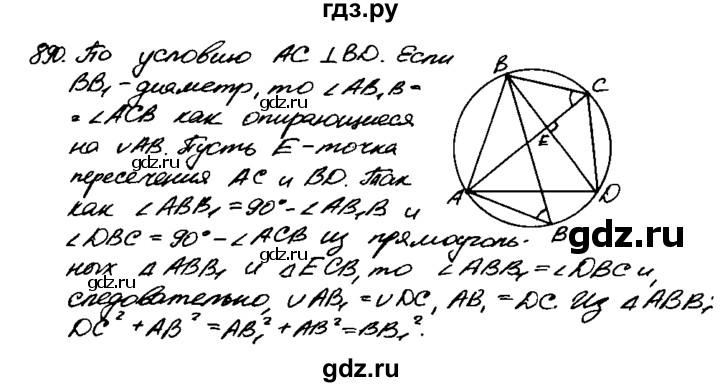 гдз.ру
890. По условию AC ⊥ BD. Если
BB₁ - диаметр, то ∠AB₁B =
= ∠ACB как опирающиеся
на ∪AB. Пусть E - точка
пересечения AC и BD. Так
как ∠ABB₁ = 90° - ∠AB₁B и
∠DBC = 90° - ∠ACB из прямоуголь-
ных △ABB₁ и △ECB, то ∠ABB₁ = ∠DBC и,
следовательно, ∪AB₁ = ∪DC, AB₁ = DC. Из △ABB₁:
DC² + AB² = AB₁² + AB² = BB₁².
B
C
E
A
D
B
gdz.ru
gdz.ru
gdz.ru
gdz.ru
gdz.ru
gdz.ru
gdz.ru
gdz.ru
gdz.ru